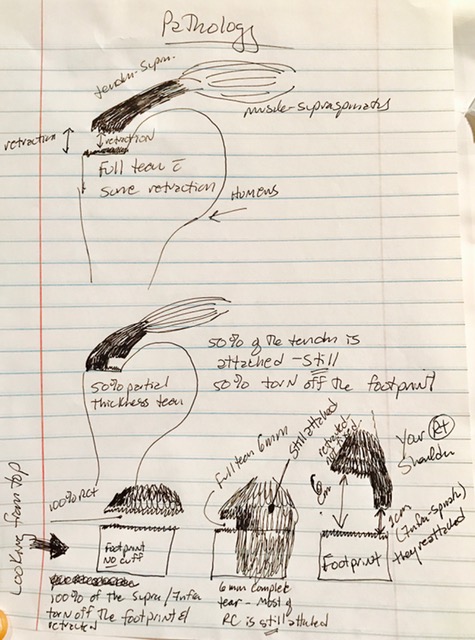 Pathology
tendon-Supra.
muscle-supraspinatus
retraction
retraction
Full tear c̄
some retraction
Humerus
50% of the tendon is
attached - Still
50% torn off the footprint
50% partial
thickness tear
100% RCT
Full tear 6mm
Still attached
retracted
Your Rt
Shoulder
1cm
(Infra-spinatus)
they reattached
Looking from top
Footprint
no cuff
Footprint
100% of the Supra/Infra
torn off the footprint &
retracted
6mm complete
tear - Most of
RC is still attached